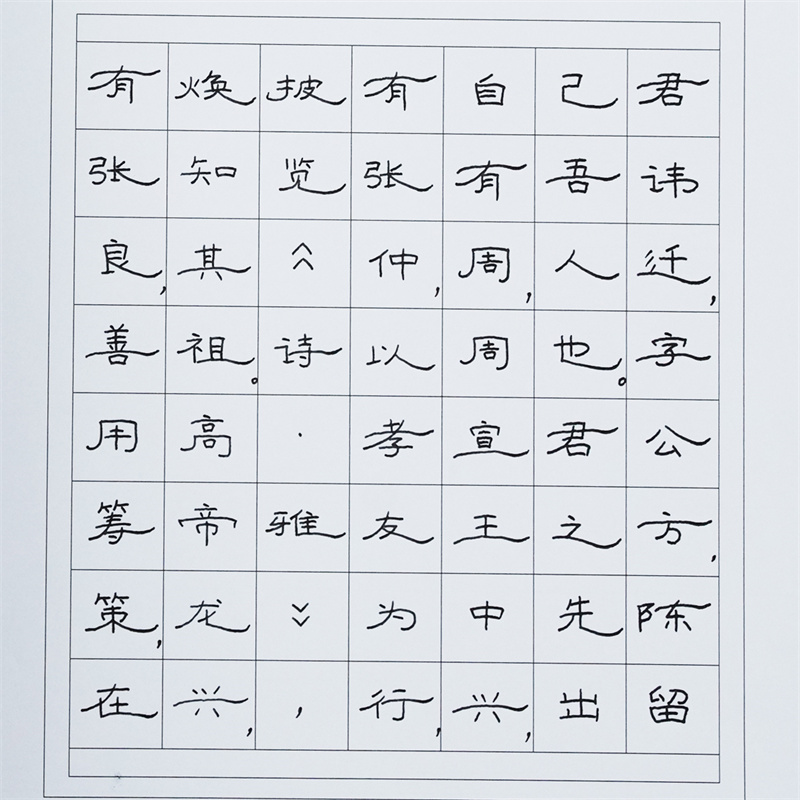 君讳迁，字公方，陈留
己吾人也。君之先出
自有周，周宣王中兴，
有张仲，以孝友为行，
披览《诗·雅》，
焕知其祖。高帝龙兴，
有张良，善用筹策，在